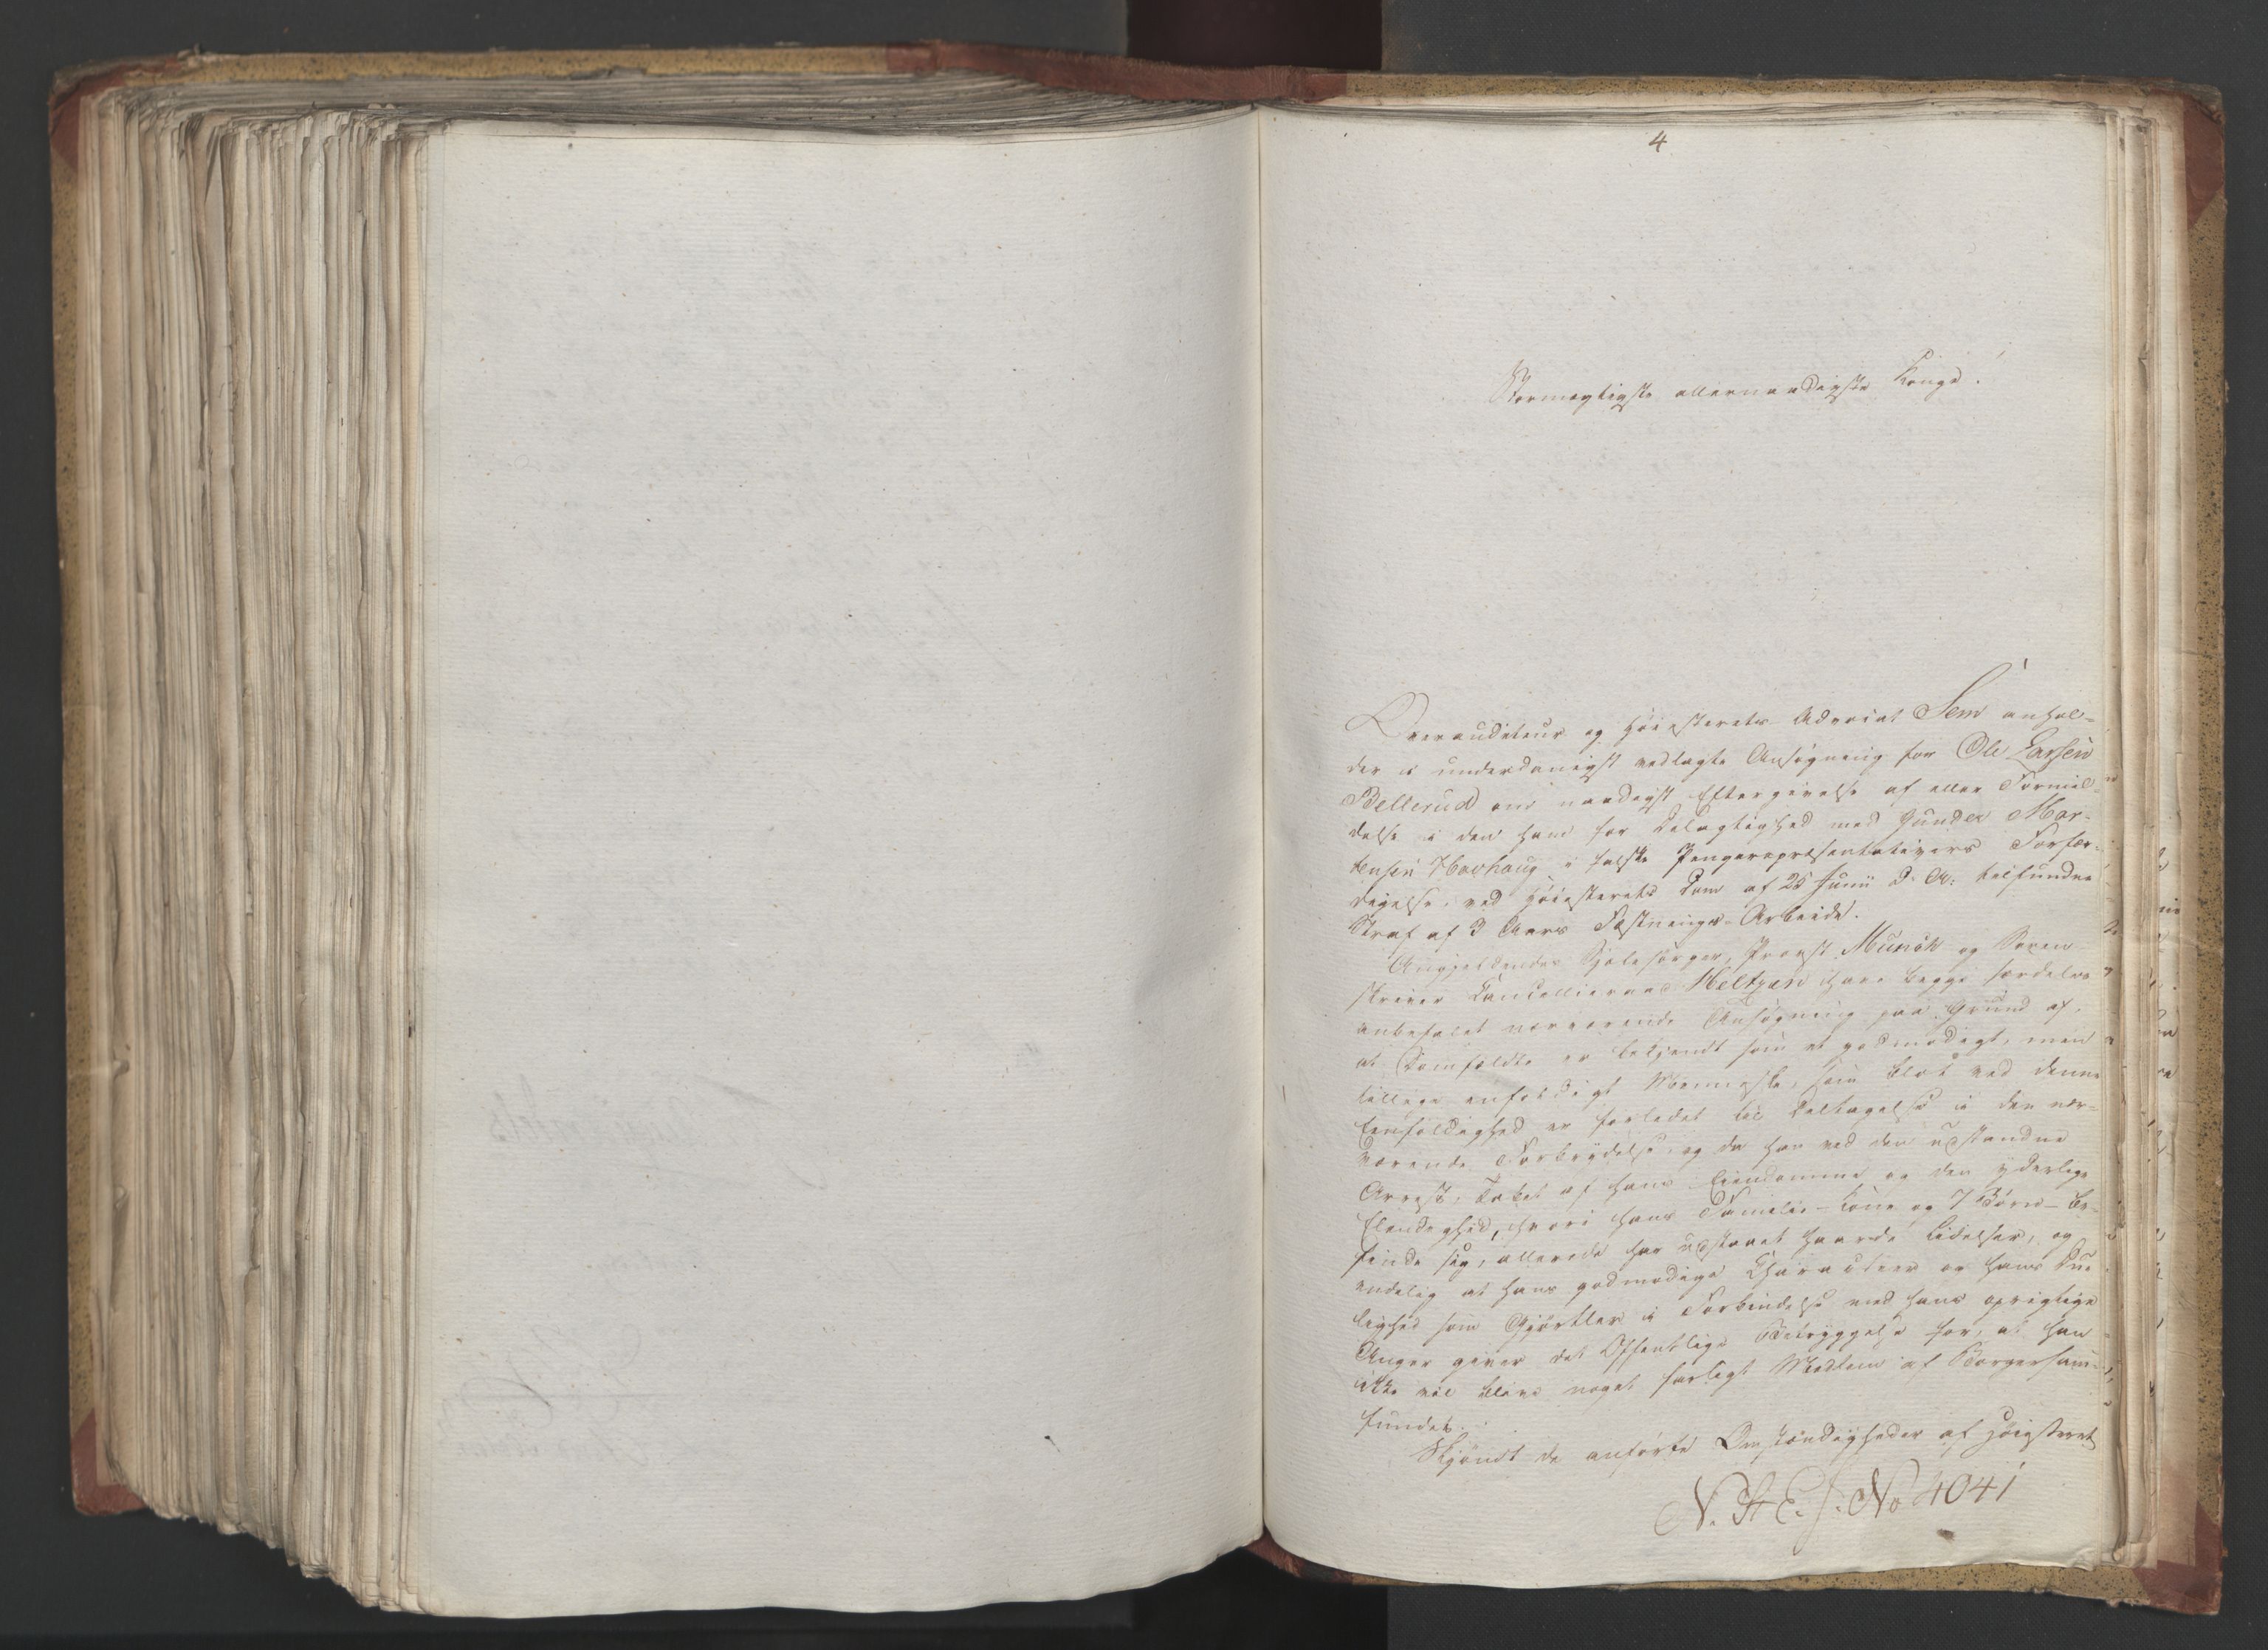 4
Stormægtigste allernaadigste Konge!
Overauditeur og Høiesterets Advocat Sem anhol-
der i underdanigst vedlagte Ansøgning for Ole Larsen
Bellerud om naadigst Eftergivelse af eller Formil-
delse i den ham for Delagtighed med Gunder Mor-
tensen Hovhaug i falske Pengerepræsentativers Forfær-
digelse, ved Høiesterets Dom af 25 Junii d. A. tilfundne
Straf af 3 Aars Fæstnings-Arbeide.
Angjeldendes Sjelesørger, Provst Munch og Soren-
skriver Cancellieraad Meltzer have begge særdeles
anbefalet nærværende Ansøgning paa Grund af,
at Domfældte er bekjendt som et godmodigt, men
tillige enfoldigt Menneske, som blot ved denne
Eenfoldighed er forledet til Deltagelse i den nær-
værende Forbrydelse, og da han ved den udstandne
Arrest, Tabet af hans Eiendomme og den yderlige
Elendighed, hvori hans Familie – Kone og 7 Børn – be-
finde sig, allerede har udstaaet haarde Lidelser, og
endelig at hans godmodige Characteer og hans Due-
lighed som Gjørtler i Forbindelse med hans oprigtige
Anger giver det Offentlige Betryggelse for, at han
ikke vil blive noget farligt Medlem af Borgersam-
fundet.
Skjøndt de anførte Omstændigheder af Høiesteret
N. St. E. J. No 4041